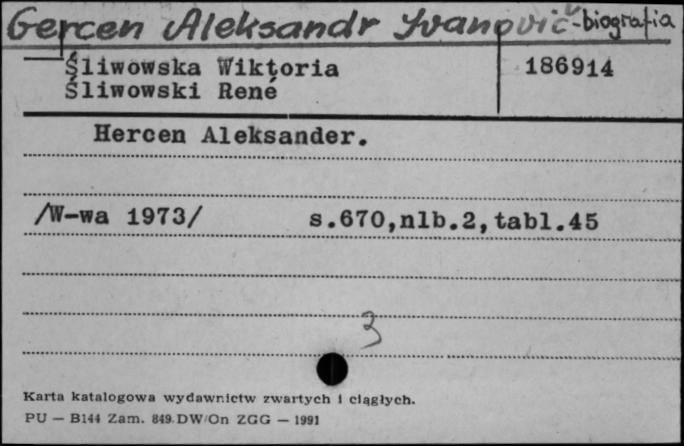 Gercen Aleksandr Ivanovič - biografia
Śliwowska Wiktoria 186914
Śliwowski René
Hercen Aleksander.
/W-wa 1973/ s.670,nlb.2,tabl.45
3
Karta katalogowa wydawnictw zwartych i ciągłych.
PU — B144 Zam. 849/DW/On ZGG — 1991